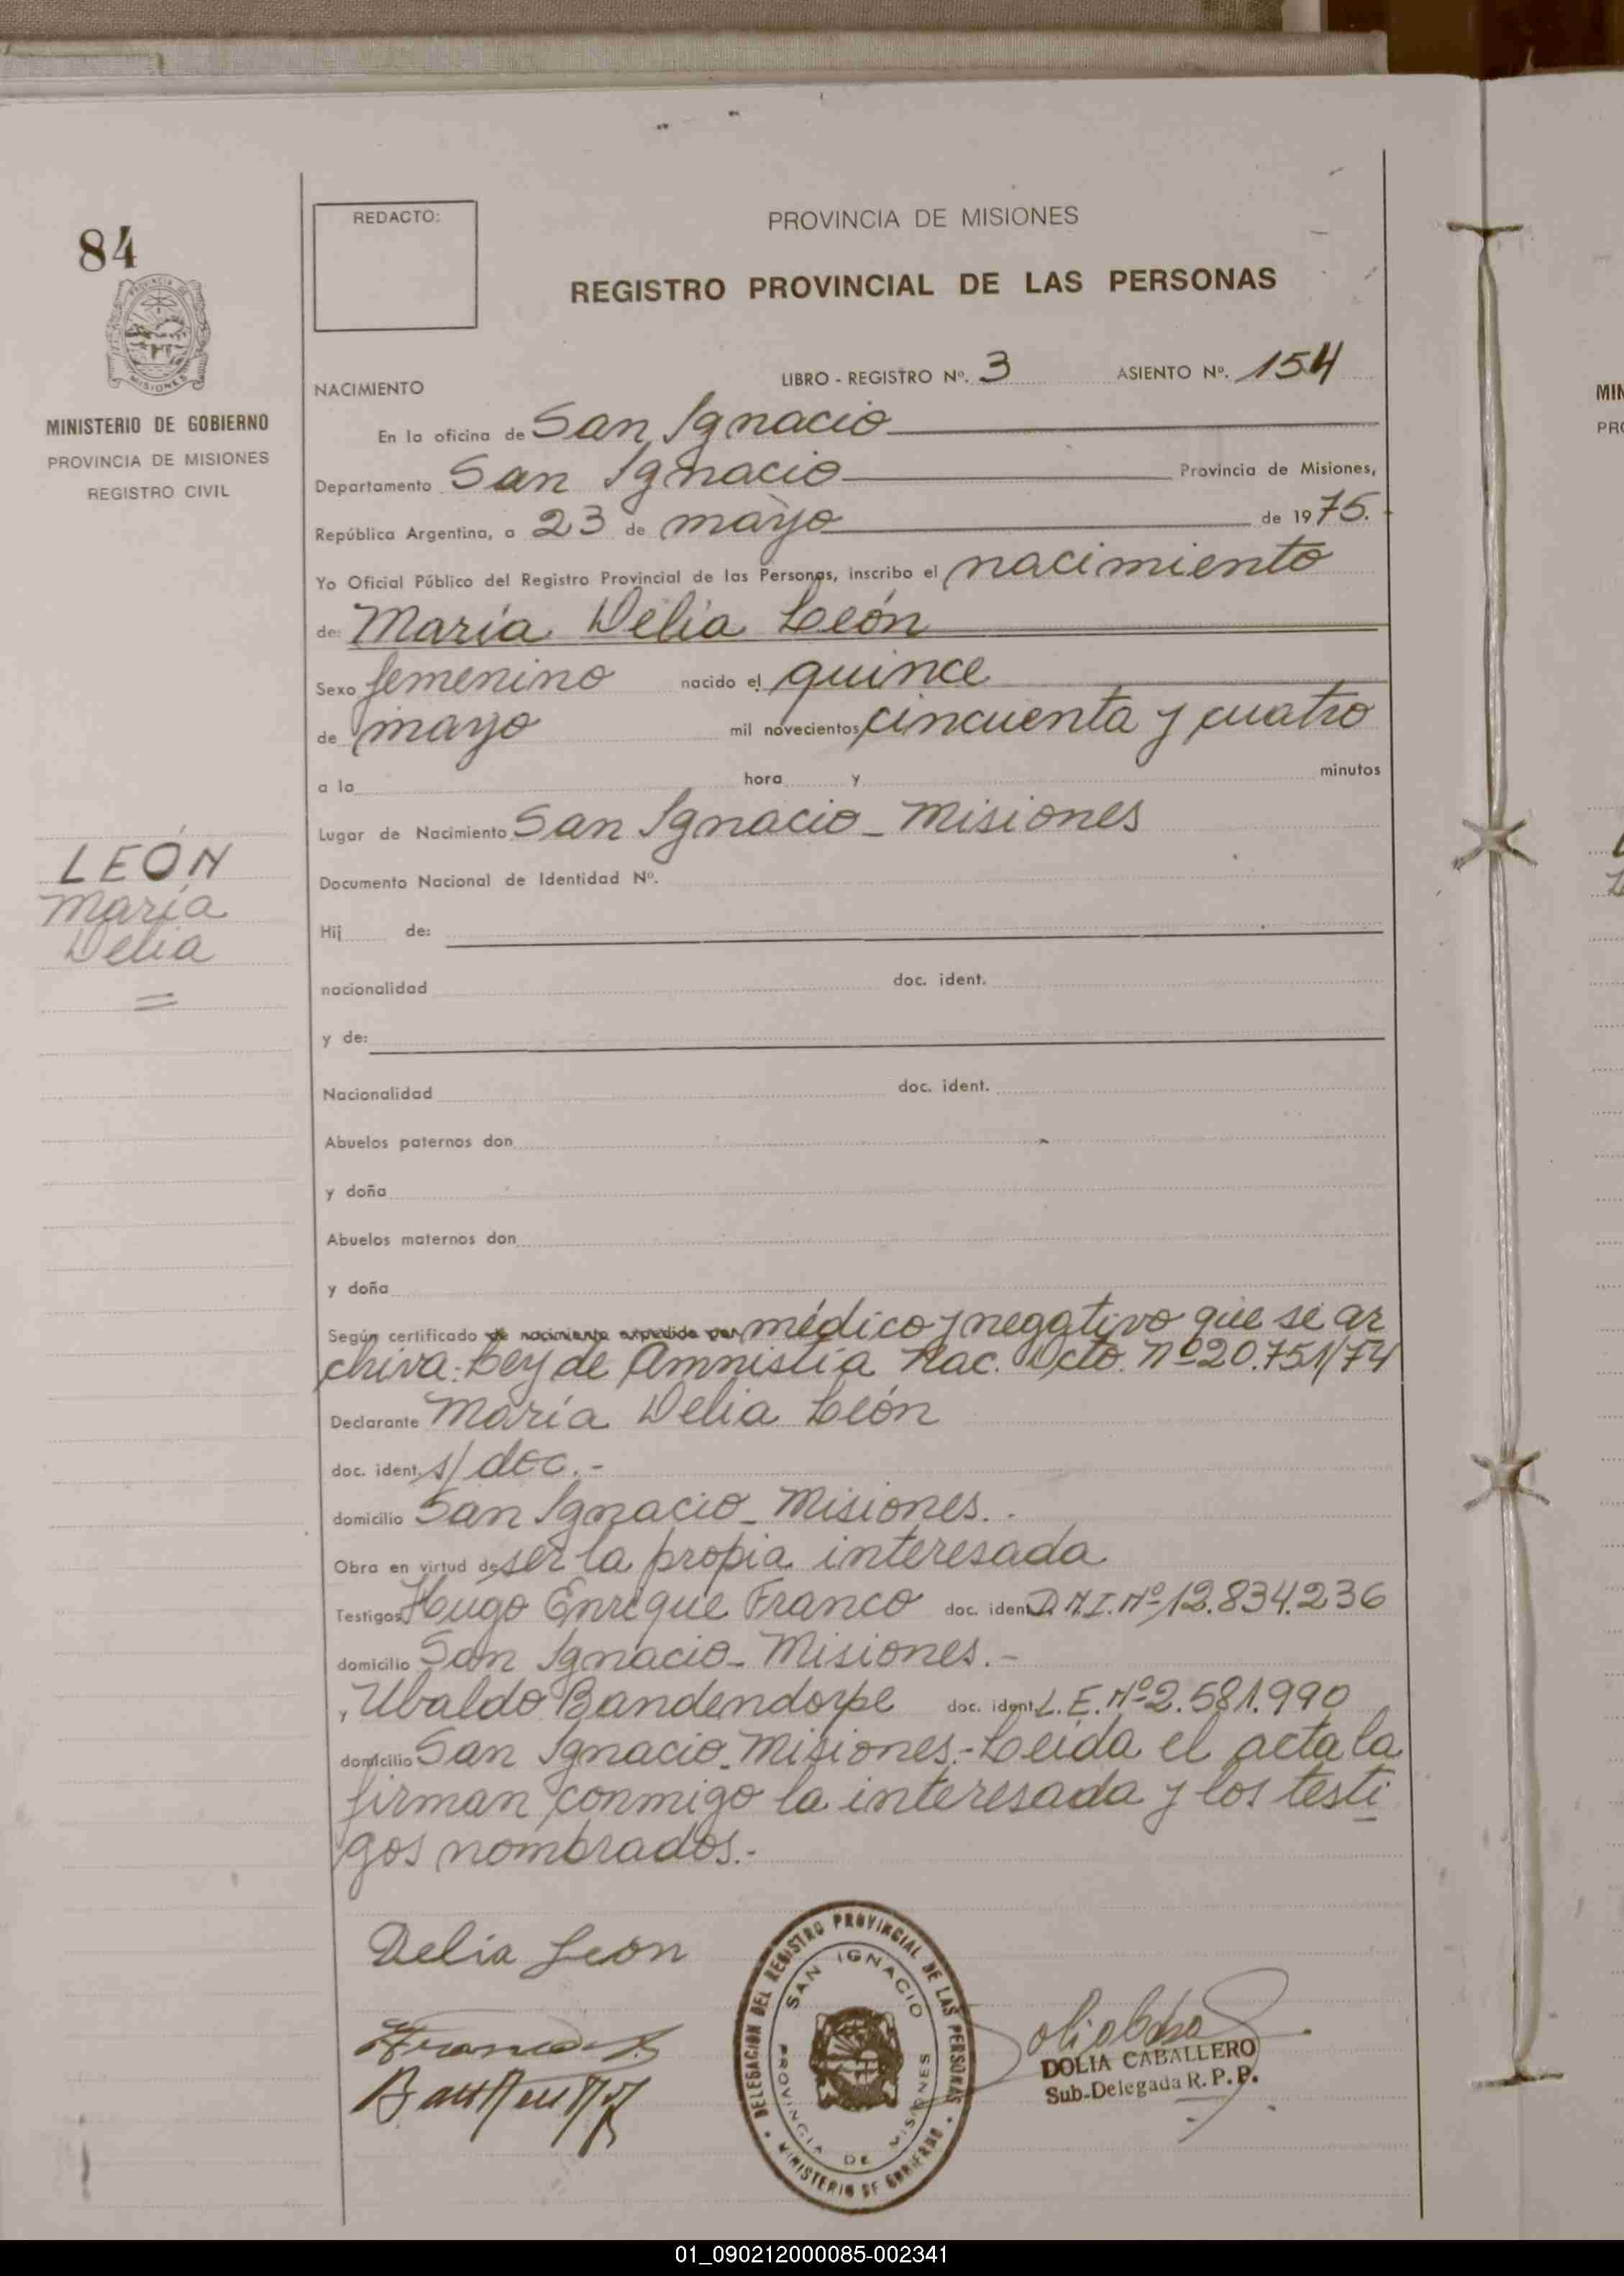 84
REDACTO:
PROVINCIA DE MISIONES
REGISTRO PROVINCIAL DE LAS PERSONAS
MISIONES
MINISTERIO DE GOBIERNO
PROVINCIA DE MISIONES
REGISTRO CIVIL
NACIMIENTO LIBRO - REGISTRO Nº. 3 ASIENTO Nº. 154
En la oficina de San Ignacio
Departamento San Ignacio Provincia de Misiones,
República Argentina, a 23 de mayo de 1975.
Yo Oficial Público del Registro Provincial de las Personas, inscribo el nacimiento
de: María Delia León
Sexo femenino nacido el quince
de mayo mil novecientos cincuenta y cuatro
a la hora y minutos
Lugar de Nacimiento San Ignacio - Misiones
LEÓN
María
Delia
Documento Nacional de Identidad Nº.
Hij de:
nacionalidad doc. ident.
y de:
Nacionalidad doc. ident.
Abuelos paternos don
y doña
Abuelos maternos don
y doña
Según certificado de nacimiento expedido por médico y negativo que se ar
chiva. Ley de Amnistía Nac. Dcto. nº 20.751/74
Declarante María Delia León
doc. ident. s/ doc. -
domicilio San Ignacio - Misiones. -
Obra en virtud de ser la propia interesada
Testigos Hugo Enrique Franco doc. ident. D.N.I. Nº 12.834.236
domicilio San Ignacio - Misiones. -
, Ubaldo Bandendorpe doc. ident. L.E. Nº 2.581.990
domicilio San Ignacio - Misiones. - Leída el acta la
firman conmigo la interesada y los testi
gos nombrados. -
Delia León
DELEGACION DEL REGISTRO PROVINCIAL DE LAS PERSONAS
SAN IGNACIO
PROVINCIA DE MISIONES
MINISTERIO DE GOBIERNO
DOLIA CABALLERO
Sub-Delegada R. P. P.
MIN
PRO
01_090212000085-002341